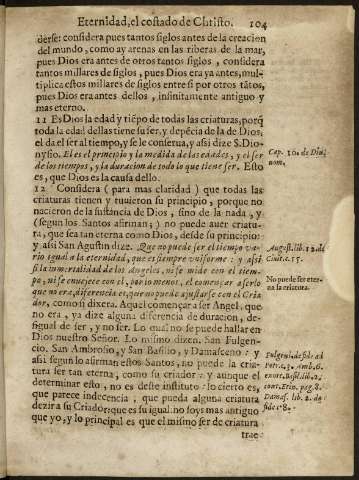 Eternidad, el costado de Christo. 104
derse: considera pues tantos siglos antes de la creacion
del mundo, como ay arenas en las riberas de la mar,
pues Dios era antes de otros tantos siglos, considera
tantos millares de siglos, pues Dios era ya antes, mul-
tiplica estos millares de siglos entre si por otros tãtos,
pues Dios era antes dellos, infinitamente antiguo y
mas eterno.
11 Es Dios la edad y tiẽpo de todas las criaturas, porq̃
toda la edad dellas tiene su ser, y depẽcia de la de Dios,
el da el ser al tiempo, y se le conserua, y asi dize S. Dio-
nysio. El es el principio y la medida de las edades, y el ser
de los tiempos, y la duracion de todo lo que tiene ser. Esto
es, que Dios es la causa dello.
Cap. 10. de Diui.
nom.
12 Considera ( para mas claridad ) que todas las
criaturas tienen y tuuieron su principio, porque no
nacieron de la sustãcia de Dios, sino de la nada, y
(segun los Santos afirman; ) no puede auer criatu-
ra, que sea tan eterna como Dios, desde su principio:
y asi San Agustin dize. Que no puede ser el tiempo va-
rio igual a la eternidad, que es siempre vniforme: y assi
si la inmortalidad de los Angeles, ni se mide con el tiem-
po, ni se enuejece con el, por lo menos, el començar a serlo
que no era, diferencia es, que no puede ajustarse con el Cria
dor, como si dixera. Aquel começar a ser Angel, que
no era, ya dize alguna diferencia de duracion, de-
sigual de ser, y no ser. Lo qual no se puede hallar en
Dios nuestro Señor. Lo mismo dizen. San Fulgen-
cio. San Ambrosio, y San Basilio, y Damasceno: y
asi segun lo afirman estos Santos, no puede la cria-
tura ser tan eterna, como su criador: y aunque el
determinar esto, no es deste instituto: lo cierto es,
que parece indecencia, que pueda alguna criatura
dezir a su Criador: que es su igual: no soys mas antiguo
que yo; y lo principal es que el mismo ser de criatura
trae
August. lib. 12. de
Ciuit. c. 15.
No puede ser eter-
na la criatura.
Fulgent. de fide ad
Petr. c. 3. Amb. 6.
Damas. lib. 2. de